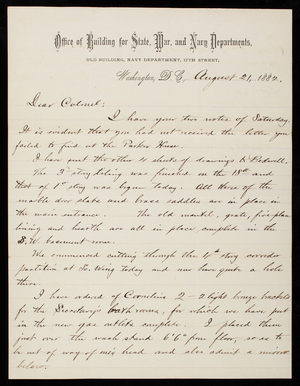 Office of Building for State, War, and Navy Departments,
OLD BUILDING, NAVY DEPARTMENT, 17TH STREET,
Washington, D. C., August 21, 1882.
Dear Colonel:
I have your two notes of Saturday.
It is evident that you had not received the letter you
failed to find at the Parker House.
I have put the other 4 sheets of drawings to Bidwell.
The 2d story tiling was finished on the 18th and
that of 1st story was begun today. All three of the
marble door slabs and brass saddles are in place in
the main entrance. The old mantel, grate, fire place
lining and hearth are all in place complete in the
S.W. basement room.
We commenced cutting through the 4th story corridor
partition at E. Wing today and now have quite a hole
there.
I have ordered of Cornelius 2 - 2 light bronze brackets
for the Secretary's bath rooms, for which we have put
in the new gas outlets complete. I placed them
just over the wash stand 6'6" from floor, so as to
be out of way of one's head and also admit a mirror
below.